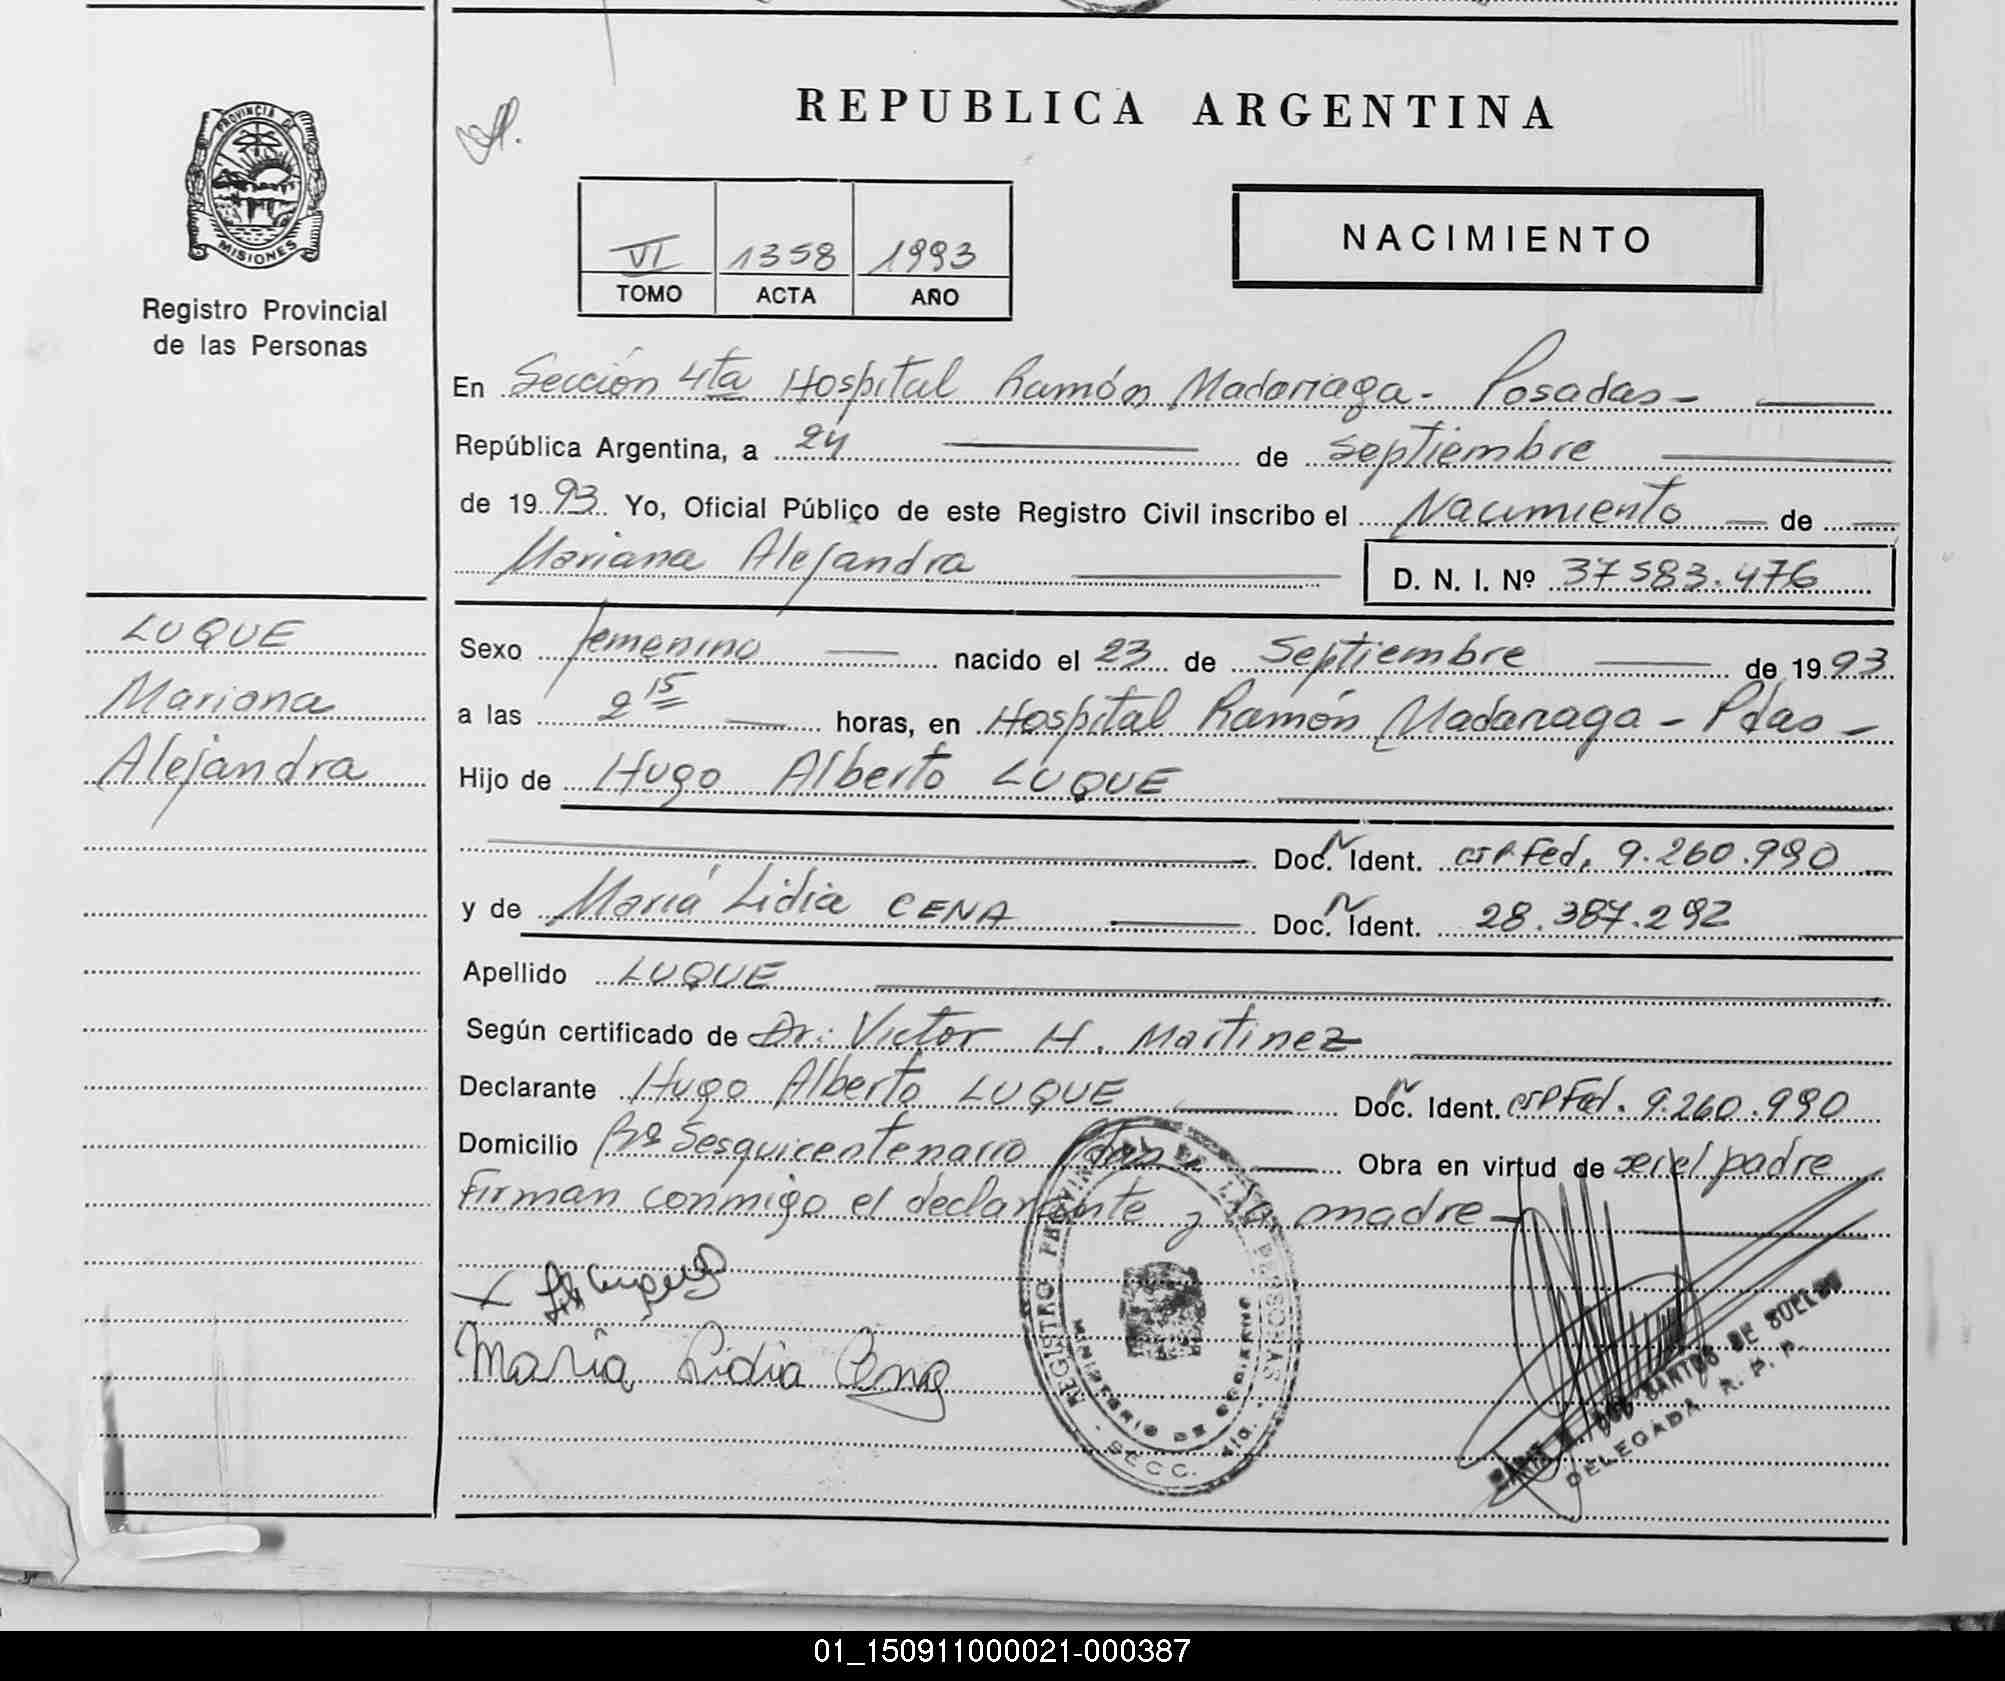 REPUBLICA ARGENTINA
PROVINCIA DE
MISIONES
Registro Provincial
de las Personas
VI 1358 1993
TOMO ACTA AÑO
NACIMIENTO
En Sección 4ta Hospital Ramón Madariaga - Posadas -
República Argentina, a 24 de septiembre
de 1993 Yo, Oficial Público de este Registro Civil inscribo el Nacimiento de
Mariana Alejandra D. N. I. Nº 37583.476
LUQUE
Mariana
Alejandra
Sexo femenino nacido el 23 de Septiembre de 1993
a las 2 15 horas, en Hospital Ramón Madariaga - Pdas -
Hijo de Hugo Alberto LUQUE
Doc. Ident. Fed. 9.260.990
y de María Lidia CENA Doc. Ident. 28.387.292
Apellido LUQUE
Según certificado de Dr: Victor H. Martinez
Declarante Hugo Alberto LUQUE Doc. Ident. Fed. 9.260.990
Domicilio Bº Sesquicentenario Pdas Obra en virtud de ser el padre
Firman conmigo el declarante y la madre -
María Lidia Cena
REGISTRO PROVINCIAL DE LAS PERSONAS
MINISTERIO DE GOBIERNO
SECC. 4ta.
DOS SANTOS DE
DELEGADA R. P. P.
01_150911000021-000387